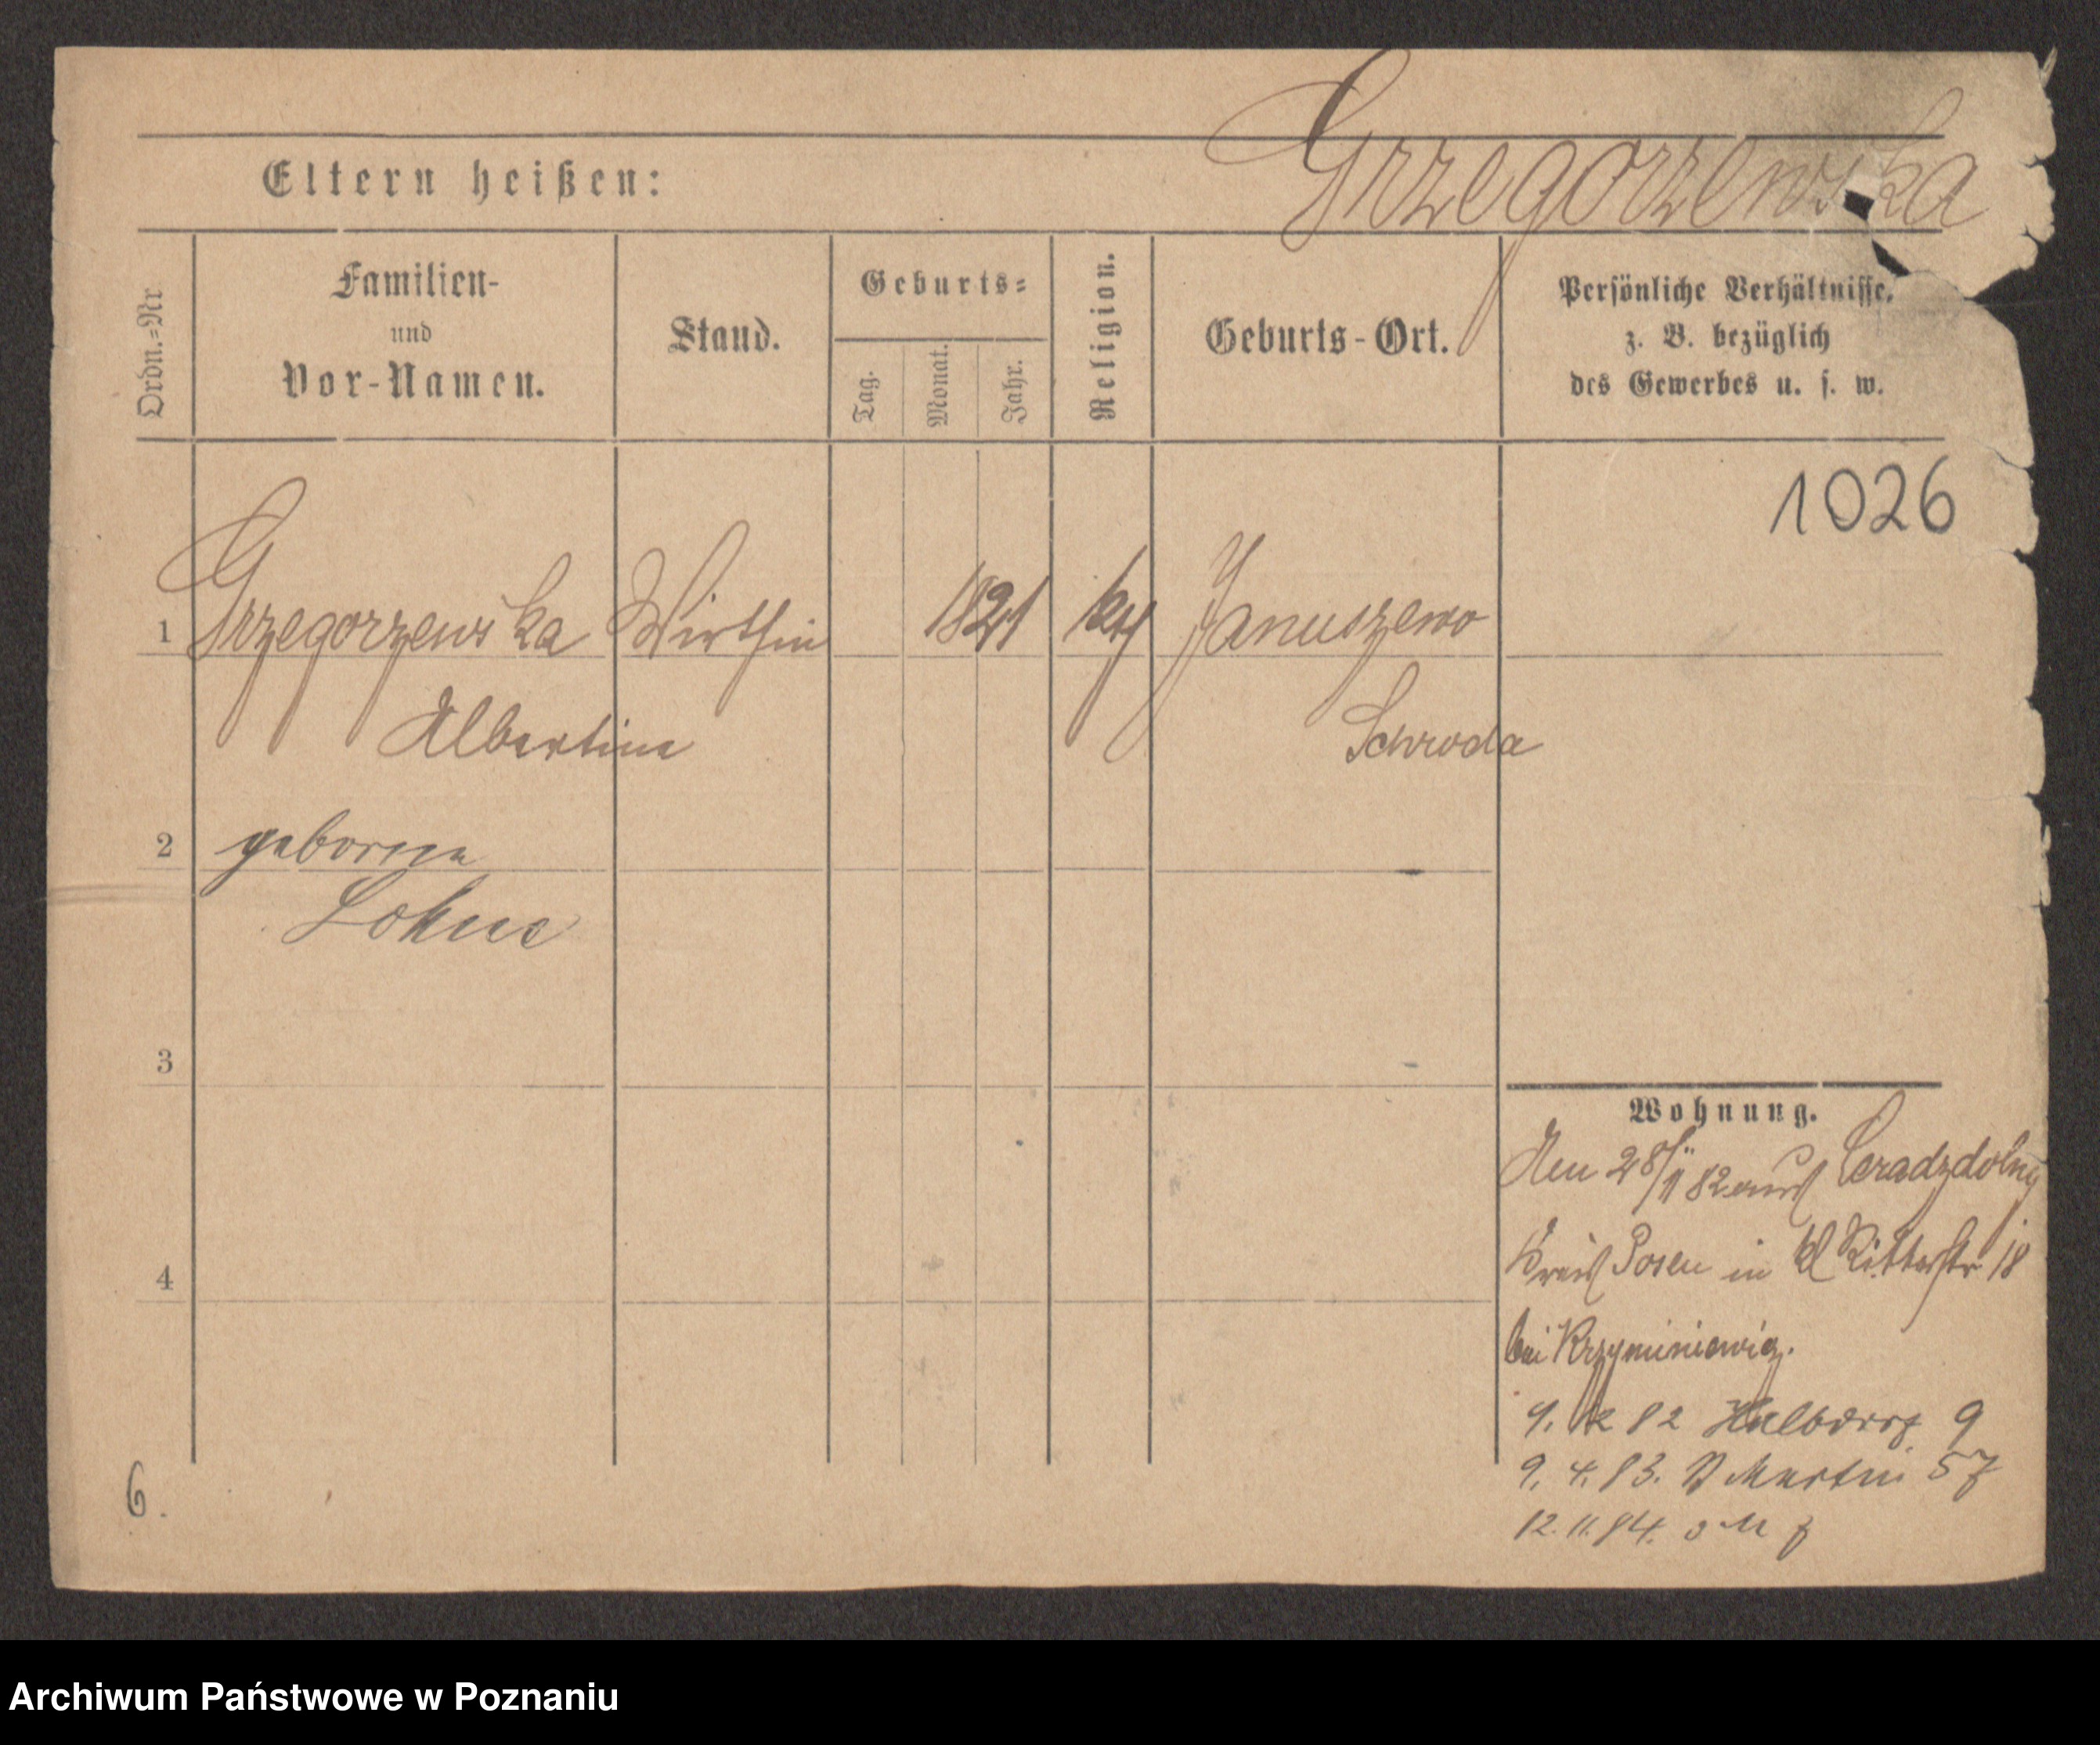 Grzegorzewska
Eltern heißen:
Ordn.=Nr
Familien-
und
Vor-Namen.
Stand.
Geburts=
Tag.
Monat.
Jahr.
Religion.
Geburts-Ort.
Persönliche Verhältnisse,
z. B. bezüglich
des Gewerbes u. s. w.
1026
1 Grzegorzewska Wirthin 1821 kth Januszewo
Albertine Schroda
2 geborne
Lohne
3
Wohnung.
Den 28/11 82 aus Ceradzdolny
Kreis Posen in kl Ritterstr 18
4
bei Krzyminiewicz.
82 Halbdorf 9
9. 4. 83. St Martin 57
12. 11. 84.
6.
Archiwum Państwowe w Poznaniu